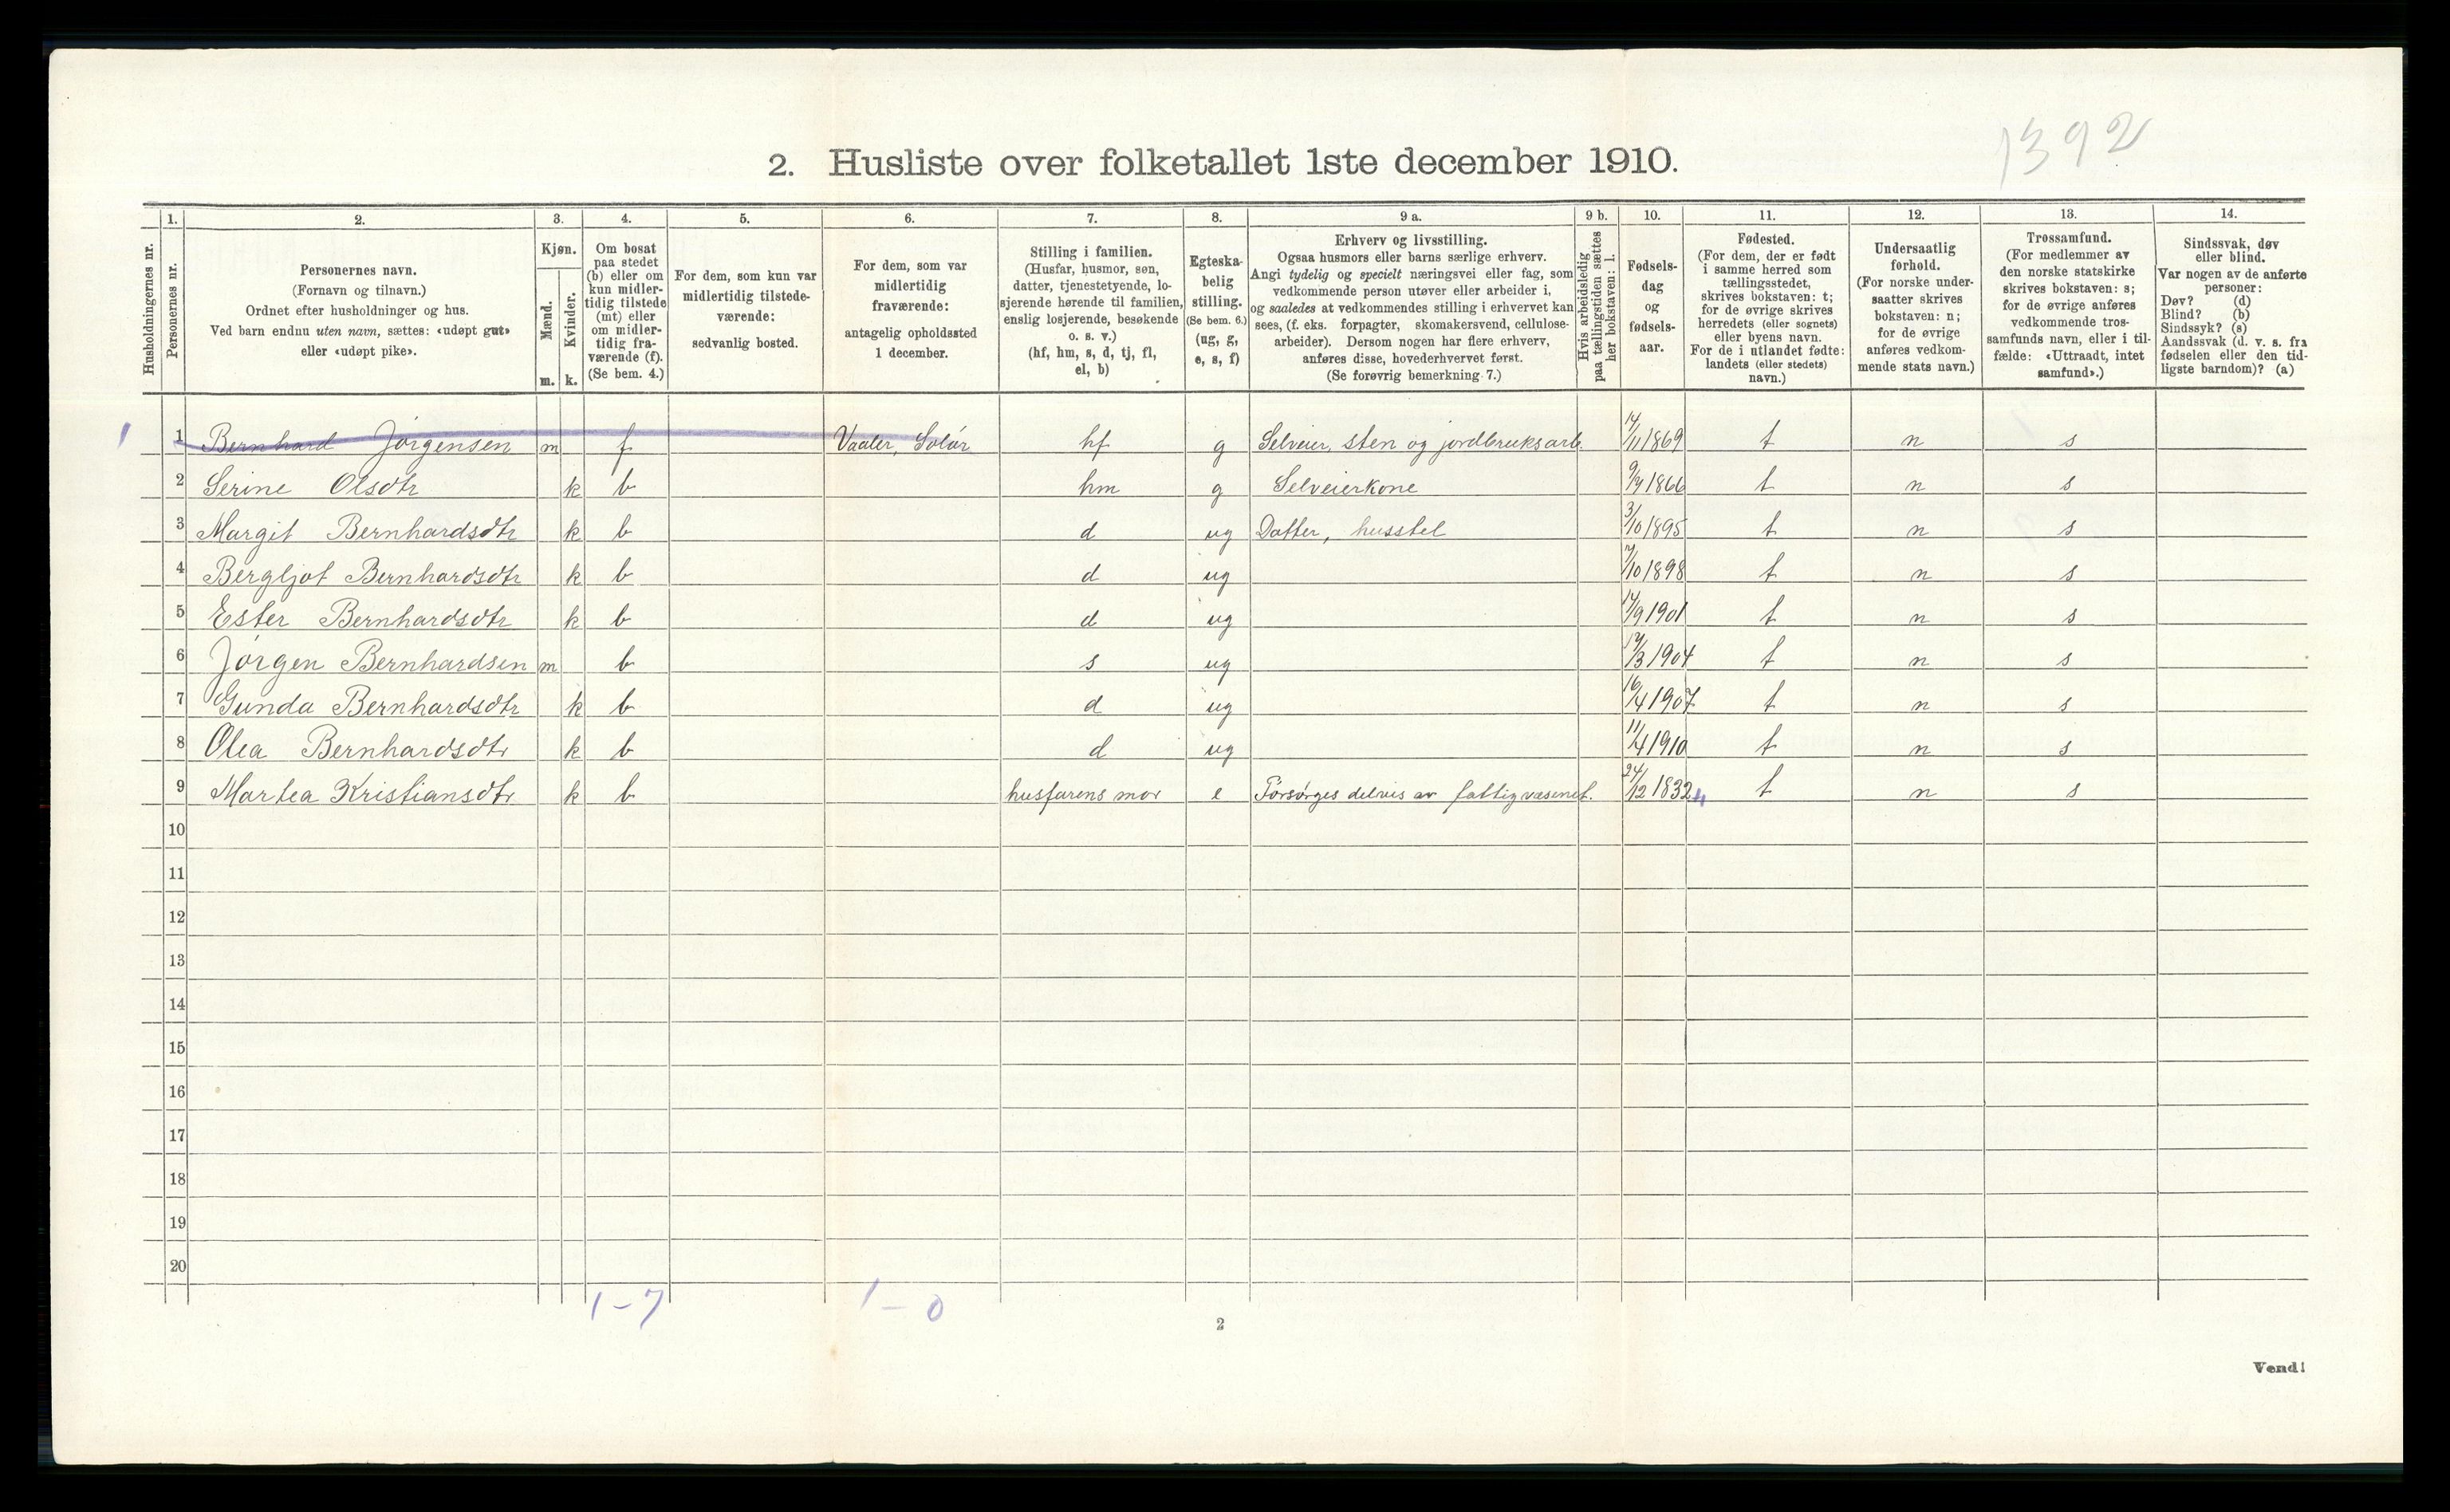 1392
2. Husliste over folketallet 1ste december 1910.
1. 2. 3. 4. 5. 6. 7. 8. 9 a. 9 b. 10. 11. 12. 13. 14.
Husholdningernes nr.
Personernes nr.
Personernes navn.
(Fornavn og tilnavn.)
Ordnet efter husholdninger og hus.
Ved barn endnu uten navn, sættes: «udøpt gut»
eller «udøpt pike».
Kjøn.
Mænd.
Kvinder.
m. k.
Om bosat
paa stedet
(b) eller om
kun midler-
tidig tilstede
(mt) eller
om midler-
tidig fra-
værende (f).
(Se bem. 4.)
For dem, som kun var
midlertidig tilstede-
værende:
sedvanlig bosted.
For dem, som var
midlertidig
fraværende:
antagelig opholdssted
1 december.
Stilling i familien.
(Husfar, husmor, søn,
datter, tjenestetyende, lo-
sjerende hørende til familien,
enslig losjerende, besøkende
o. s. v.)
(hf, hm, s, d, tj, fl,
el, b)
Egteska-
belig
stilling.
(Se bem. 6.)
(ug, g,
e, s, f)
Erhverv og livsstilling.
Ogsaa husmors eller barns særlige erhverv.
Angi tydelig og specielt næringsvei eller fag, som
vedkommende person utøver eller arbeider i,
og saaledes at vedkommendes stilling i erhvervet kan
sees, (f. eks. forpagter, skomakersvend, cellulose-
arbeider). Dersom nogen har flere erhverv,
anføres disse, hovederhvervet først.
(Se forøvrig bemerkning 7.)
Hvis arbeidsledig
paa tællingstiden sættes
her bokstaven: l.
Fødsels-
dag
og
fødsels-
aar.
Fødested.
(For dem, der er født
i samme herred som
tællingsstedet,
skrives bokstaven: t;
for de øvrige skrives
herredets (eller sognets)
eller byens navn.
For de i utlandet fødte:
landets (eller stedets)
navn.)
Undersaatlig
forhold.
(For norske under-
saatter skrives
bokstaven: n;
for de øvrige
anføres vedkom-
mende stats navn.)
Trossamfund.
(For medlemmer av
den norske statskirke
skrives bokstaven: s;
for de øvrige anføres
vedkommende tros-
samfunds navn, eller i til-
fælde: «Uttraadt, intet
samfund».)
Sindssvak, døv
eller blind.
Var nogen av de anførte
personer:
Døv? (d)
Blind? (b)
Sindssyk? (s)
Aandssvak (d. v. s. fra
fødselen eller den tid-
ligste barndom)? (a)
1 1 Bernhard Jørgensen m f Vaaler, Solør hf g Selveier, sten og jordbruksarb. 14/11 1869 t n s
2 Serine Olsdtr k b hm g Selveierkone 1866 t n s
3 Margit Bernhardsdtr k b d ug Datter, husstel 3/10 1895 t n s
4 Bergljot Bernhardsdtr k b d ug 7/10 1898 t n s
5 Ester Bernhardsdtr k b d ug 14/9 1901 t n s
6 Jørgen Bernhardsen m b s ug 1904 t n s
7 Gunda Bernhardsdtr k b d ug 16/4 1907 t n s
8 Olea Bernhardsdtr k b d ug 11/4 1910 t n s
9 Martea Kristiansdtr k b husfarens mor e Forsørges delvis av fattigvæsenet. 24/12 1832 4 t n s
10
11
12
13
14
15
16
17
18
19
20
1-7 1-0
2
Vend!